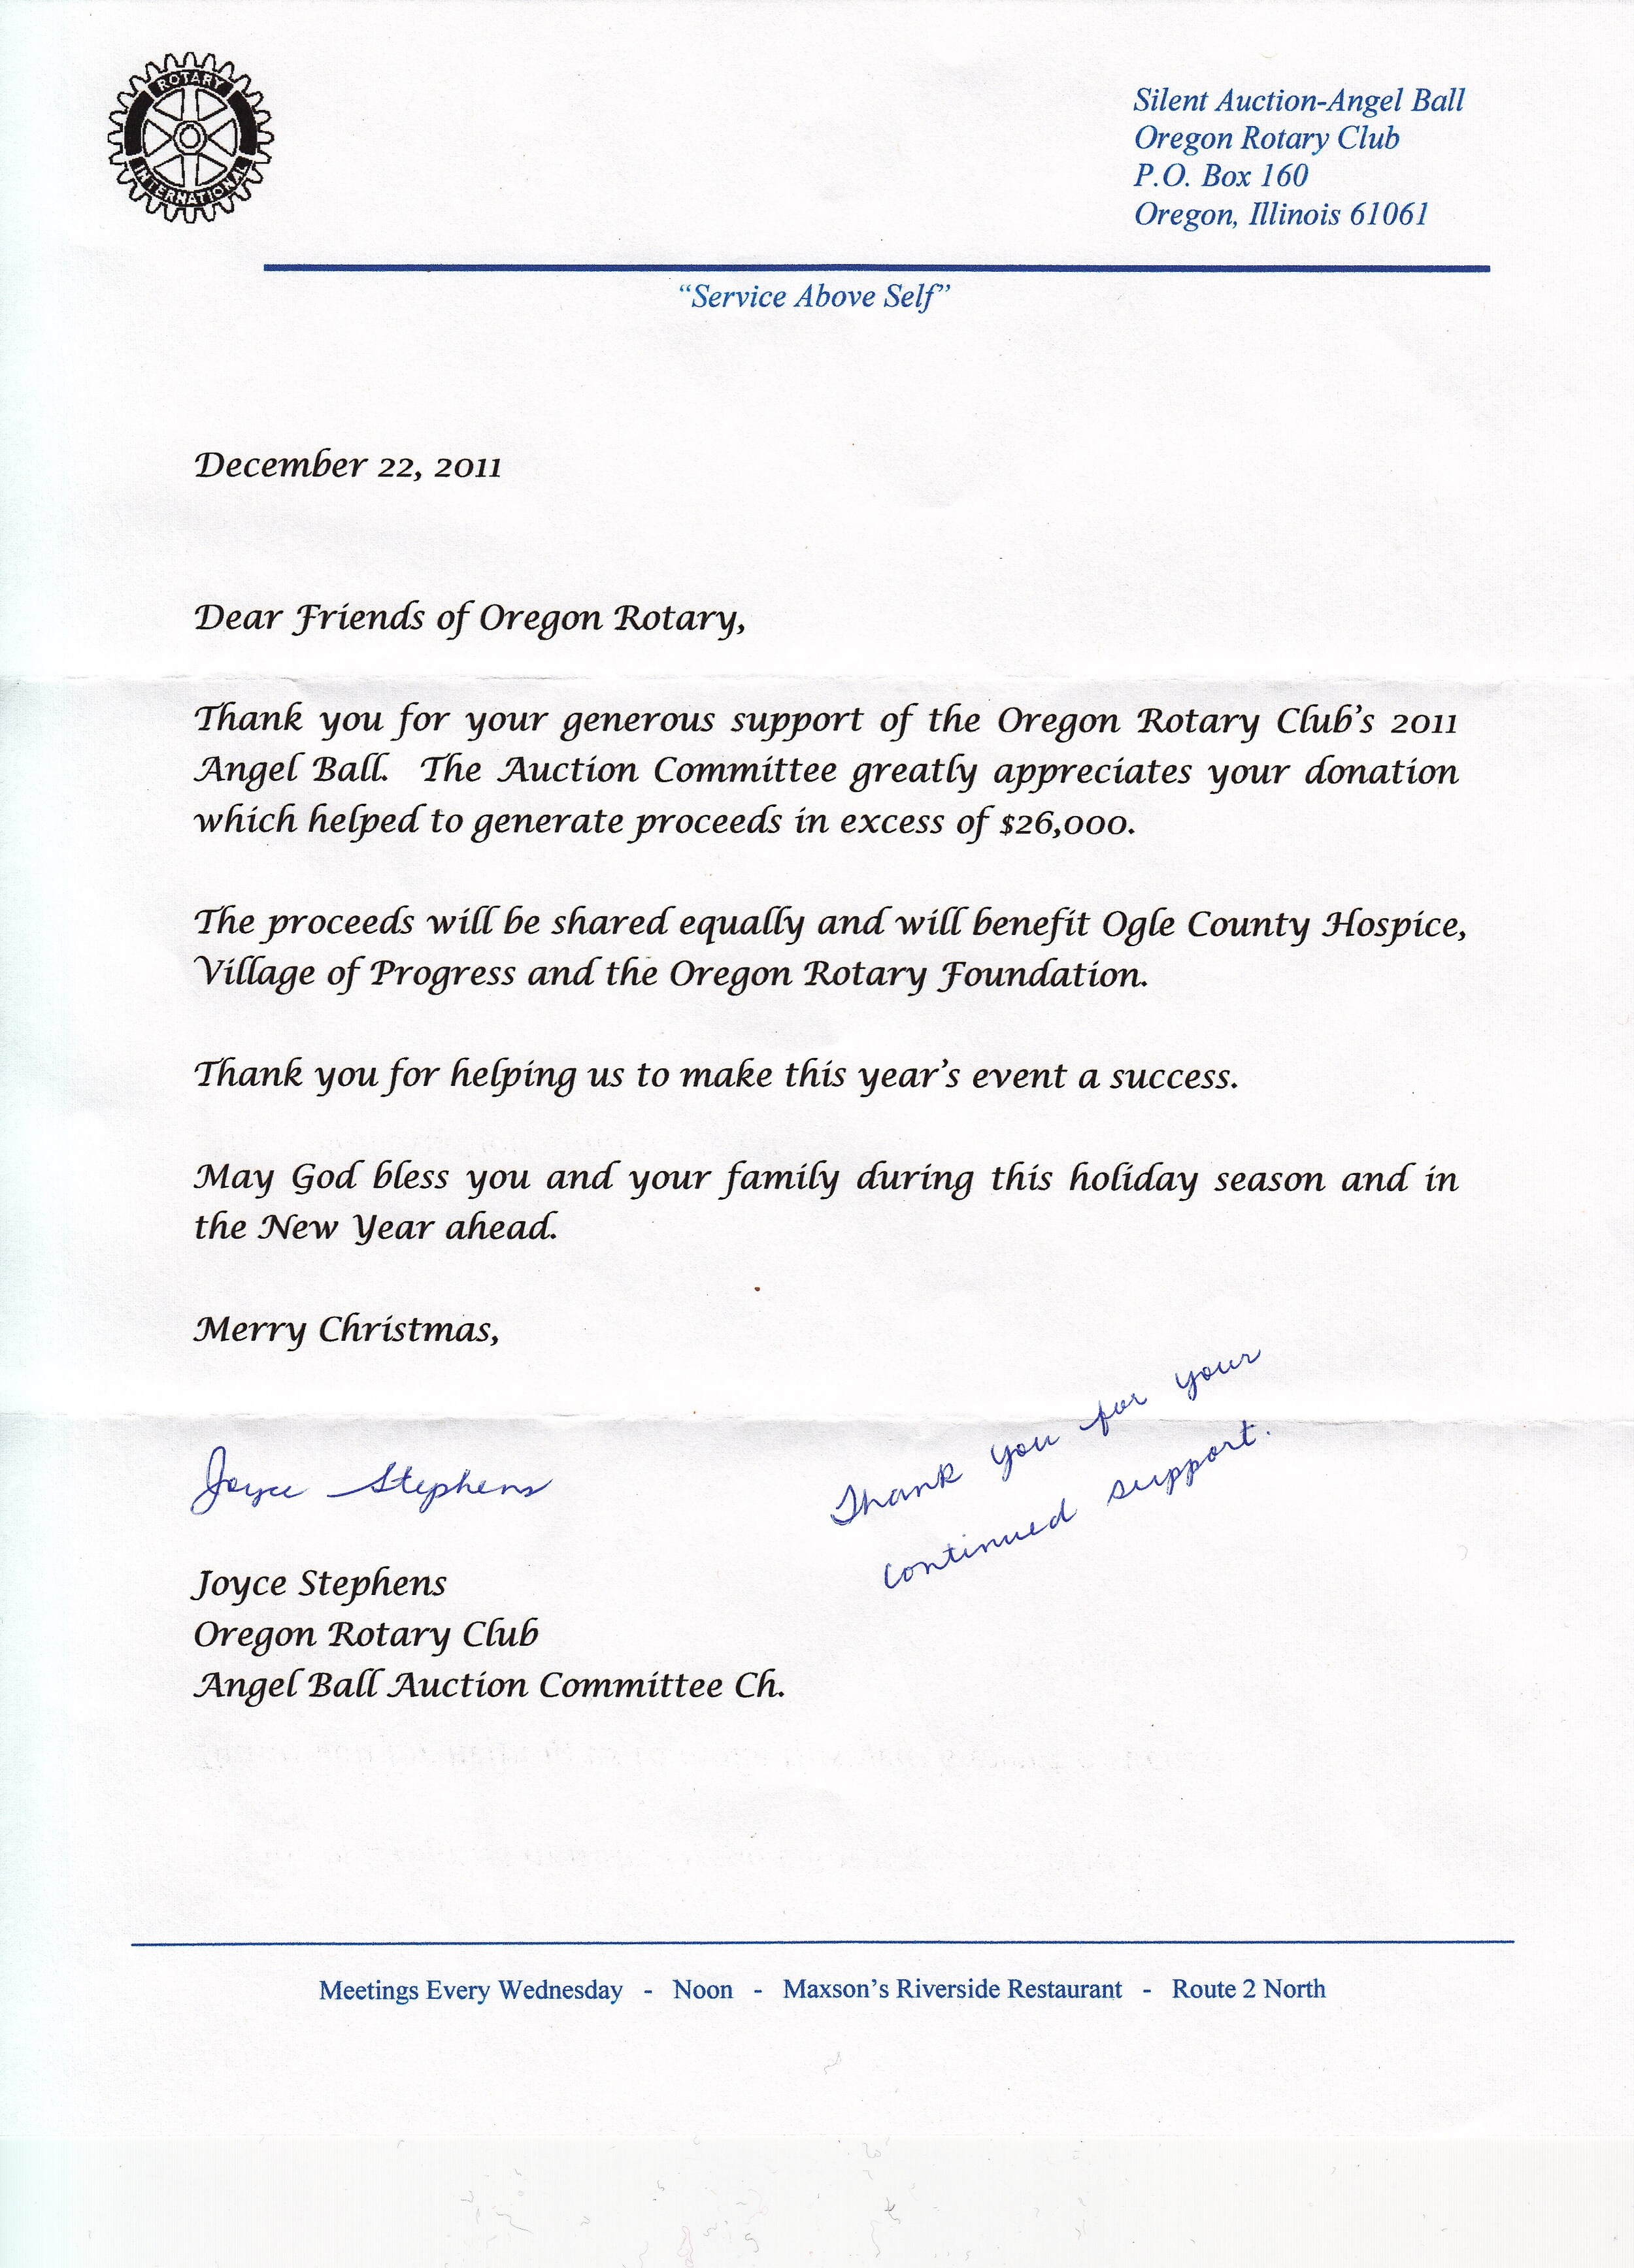 ROTARY
INTERNATIONAL
Silent Auction-Angel Ball
Oregon Rotary Club
P.O. Box 160
Oregon, Illinois 61061
“Service Above Self”
December 22, 2011
Dear Friends of Oregon Rotary,
Thank you for your generous support of the Oregon Rotary Club’s 2011
Angel Ball. The Auction Committee greatly appreciates your donation
which helped to generate proceeds in excess of $26,000.
The proceeds will be shared equally and will benefit Ogle County Hospice,
Village of Progress and the Oregon Rotary Foundation.
Thank you for helping us to make this year’s event a success.
May God bless you and your family during this holiday season and in
the New Year ahead.
Merry Christmas,
Joyce Stephens
Thank you for your
continued support.
Joyce Stephens
Oregon Rotary Club
Angel Ball Auction Committee Ch.
Meetings Every Wednesday - Noon - Maxson’s Riverside Restaurant - Route 2 North